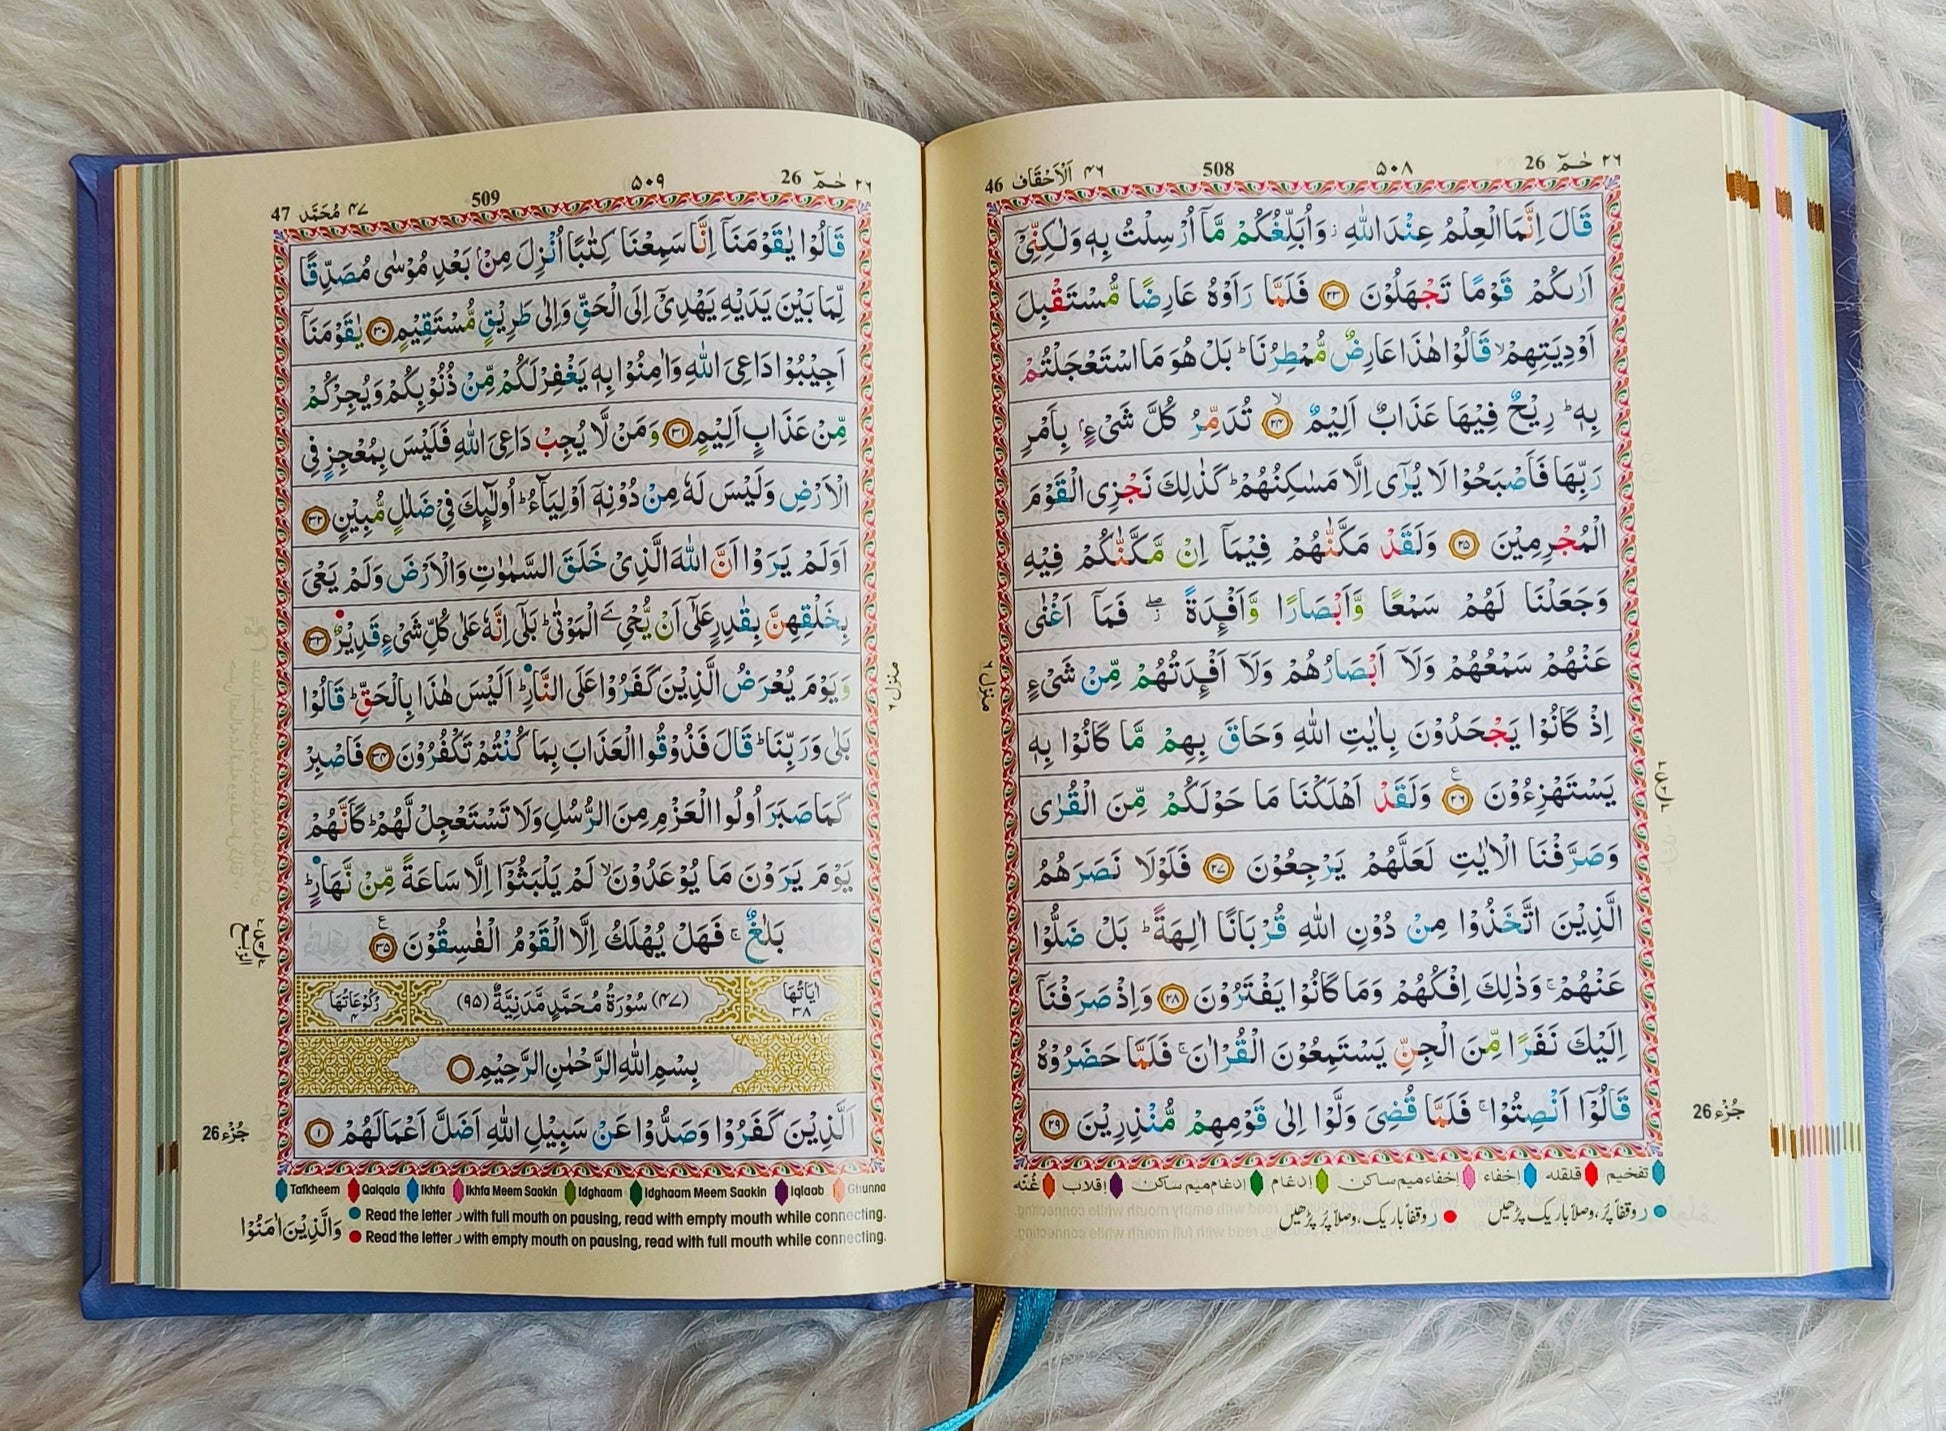 ٢٦ حٰمٓ 26 ٥٠٨ 508 ٤٦ اَلْاَحْقَاف 46
قَالَ اِنَّمَا الْعِلْمُ عِنْدَ اللّٰهِ ۫ وَاُبَلِّغُكُمْ مَّاۤ اُرْسِلْتُ بِهٖ وَلٰكِنِّیْۤ
اَرٰىكُمْ قَوْمًا تَجْهَلُوْنَ ﴿۲۳﴾ فَلَمَّا رَاَوْهُ عَارِضًا مُّسْتَقْبِلَ
اَوْدِیَتِهِمْ ۙ قَالُوْا هٰذَا عَارِضٌ مُّمْطِرُنَا ؕ بَلْ هُوَ مَا اسْتَعْجَلْتُمْ
بِهٖ ؕ رِیْحٌ فِیْهَا عَذَابٌ اَلِیْمٌ ﴿ۙ۲۴﴾ تُدَمِّرُ كُلَّ شَیْءٍۭ بِاَمْرِ
رَبِّهَا فَاَصْبَحُوْا لَا یُرٰۤی اِلَّا مَسٰكِنُهُمْ ؕ كَذٰلِكَ نَجْزِی الْقَوْمَ
الْمُجْرِمِیْنَ ﴿۲۵﴾ وَلَقَدْ مَكَّنّٰهُمْ فِیْمَاۤ اِنْ مَّكَّنّٰكُمْ فِیْهِ
وَجَعَلْنَا لَهُمْ سَمْعًا وَّاَبْصَارًا وَّاَفْـِٕدَةً ۖؗ فَمَاۤ اَغْنٰی
عَنْهُمْ سَمْعُهُمْ وَلَاۤ اَبْصَارُهُمْ وَلَاۤ اَفْـِٕدَتُهُمْ مِّنْ شَیْءٍ
اِذْ كَانُوْا یَجْحَدُوْنَ بِاٰیٰتِ اللّٰهِ وَحَاقَ بِهِمْ مَّا كَانُوْا بِهٖ
یَسْتَهْزِءُوْنَ ﴿۲۶﴾ وَلَقَدْ اَهْلَكْنَا مَا حَوْلَكُمْ مِّنَ الْقُرٰی
وَصَرَّفْنَا الْاٰیٰتِ لَعَلَّهُمْ یَرْجِعُوْنَ ﴿۲۷﴾ فَلَوْلَا نَصَرَهُمُ
الَّذِیْنَ اتَّخَذُوْا مِنْ دُوْنِ اللّٰهِ قُرْبَانًا اٰلِهَةً ؕ بَلْ ضَلُّوْا
عَنْهُمْ ۚ وَذٰلِكَ اِفْكُهُمْ وَمَا كَانُوْا یَفْتَرُوْنَ ﴿۲۸﴾ وَاِذْ صَرَفْنَاۤ
اِلَیْكَ نَفَرًا مِّنَ الْجِنِّ یَسْتَمِعُوْنَ الْقُرْاٰنَ ۚ فَلَمَّا حَضَرُوْهُ
قَالُوْۤا اَنْصِتُوْا ۚ فَلَمَّا قُضِیَ وَلَّوْا اِلٰی قَوْمِهِمْ مُّنْذِرِیْنَ ﴿۲۹﴾
منزل ٦
جُزء 26
تفخیم قلقلہ إخفاء إخفاء میم ساکن إدغام إدغام میم ساکن إقلاب غُنّه
ر وقفاً پُر، وصلاً باریک پڑھیں ر وقفاً باریک، وصلاً پُر پڑھیں
٢٦ حٰمٓ 26 ٥٠٩ 509 ٤٧ مُحَمَّد 47
قَالُوْا یٰقَوْمَنَاۤ اِنَّا سَمِعْنَا كِتٰبًا اُنْزِلَ مِنْۢ بَعْدِ مُوْسٰی مُصَدِّقًا
لِّمَا بَیْنَ یَدَیْهِ یَهْدِیْۤ اِلَی الْحَقِّ وَاِلٰی طَرِیْقٍ مُّسْتَقِیْمٍ ﴿۳۰﴾ یٰقَوْمَنَاۤ
اَجِیْبُوْا دَاعِیَ اللّٰهِ وَاٰمِنُوْا بِهٖ یَغْفِرْ لَكُمْ مِّنْ ذُنُوْبِكُمْ وَیُجِرْكُمْ
مِّنْ عَذَابٍ اَلِیْمٍ ﴿۳۱﴾ وَمَنْ لَّا یُجِبْ دَاعِیَ اللّٰهِ فَلَیْسَ بِمُعْجِزٍ فِی
الْاَرْضِ وَلَیْسَ لَهٗ مِنْ دُوْنِهٖۤ اَوْلِیَآءُ ؕ اُولٰٓىِٕكَ فِیْ ضَلٰلٍ مُّبِیْنٍ ﴿۳۲﴾
اَوَلَمْ یَرَوْا اَنَّ اللّٰهَ الَّذِیْ خَلَقَ السَّمٰوٰتِ وَالْاَرْضَ وَلَمْ یَعْیَ
بِخَلْقِهِنَّ بِقٰدِرٍ عَلٰۤی اَنْ یُّحْیِۦَ الْمَوْتٰی ؕ بَلٰۤی اِنَّهٗ عَلٰی كُلِّ شَیْءٍ قَدِیْرٌ ﴿۳۳﴾
وَیَوْمَ یُعْرَضُ الَّذِیْنَ كَفَرُوْا عَلَی النَّارِ ؕ اَلَیْسَ هٰذَا بِالْحَقِّ ؕ قَالُوْا
بَلٰی وَرَبِّنَا ؕ قَالَ فَذُوْقُوا الْعَذَابَ بِمَا كُنْتُمْ تَكْفُرُوْنَ ﴿۳۴﴾ فَاصْبِرْ
كَمَا صَبَرَ اُولُوا الْعَزْمِ مِنَ الرُّسُلِ وَلَا تَسْتَعْجِلْ لَّهُمْ ؕ كَاَنَّهُمْ
یَوْمَ یَرَوْنَ مَا یُوْعَدُوْنَ ۙ لَمْ یَلْبَثُوْۤا اِلَّا سَاعَةً مِّنْ نَّهَارٍ ؕ
بَلٰغٌ ۚ فَهَلْ یُهْلَكُ اِلَّا الْقَوْمُ الْفٰسِقُوْنَ ﴿۳۵﴾
اٰیَاتُهَا ٣٨ (٤٧) سُوْرَةُ مُحَمَّدٍ مَّدَنِیَّةٌ (٩٥) رُكُوْعَاتُهَا ٤
بِسْمِ اللّٰهِ الرَّحْمٰنِ الرَّحِیْمِ
اَلَّذِیْنَ كَفَرُوْا وَصَدُّوْا عَنْ سَبِیْلِ اللّٰهِ اَضَلَّ اَعْمَالَهُمْ ﴿۱﴾
منزل ٦
جُزء 26
Tafkheem Qalqala Ikhfa Ikhfa Meem Saakin Idghaam Idghaam Meem Saakin Iqlaab Ghunna
Read the letter ر with full mouth on pausing, read with empty mouth while connecting.
Read the letter ر with empty mouth on pausing, read with full mouth while connecting.
وَالَّذِیْنَ اٰمَنُوْا